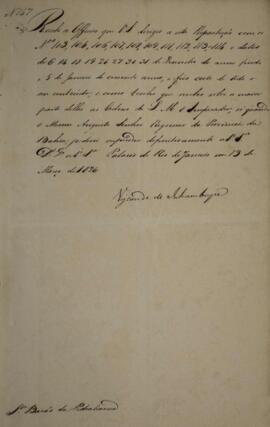 Nº 57
Recebi os Officios que V S dirigio a esta Repartição com os
Nºˢ 103, 105, 106, 107, 108, 109, 111, 112, 113, 114 e datas
de 6 14 18 19 26 27 24 31 de Dezembro do anno findo
e 5 de Janeiro do corrente anno, e fico certo de todo o
seu conteúdo, e como tenho que receber sobre a maior
parte delles as Ordens de S. M. o Imperador, só quando
o Mesmo Augusto Senhor Regressar da Provincia da
Bahia, poderei responder definitivamente a V S
D. G. a V. Sª Palacio do Rio de Janeiro em 13 de
Março de 1826
Visconde de Inhambupe
Sr Barão de Itabaiana